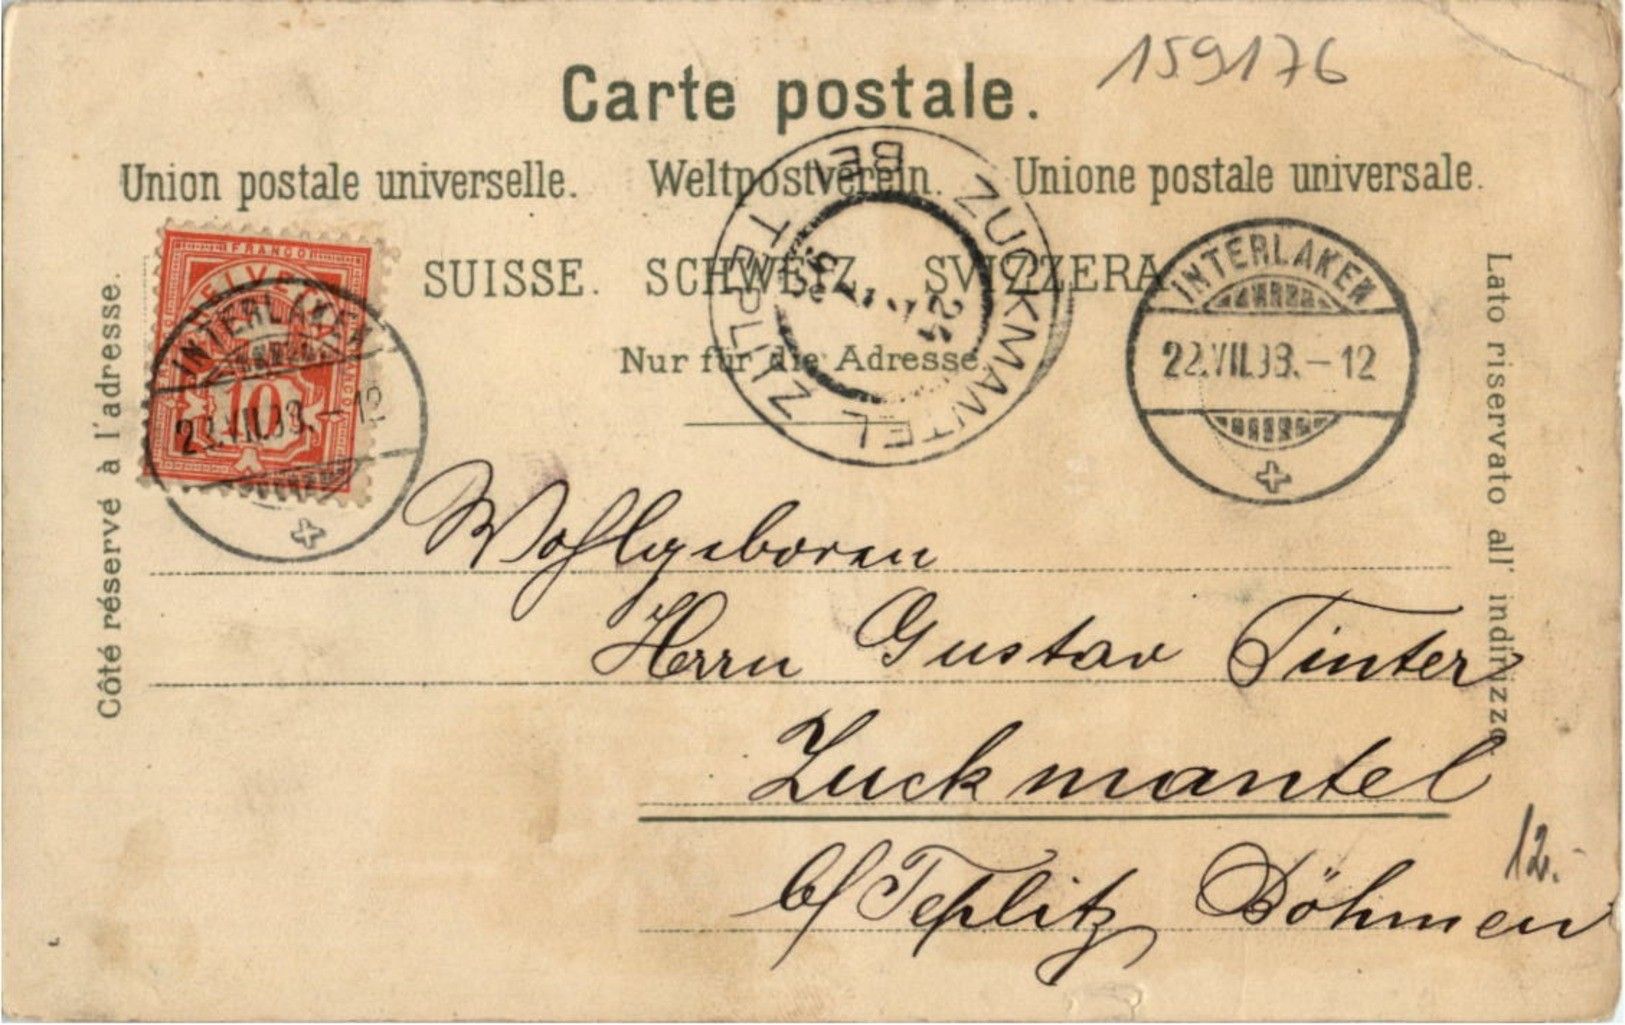 159176
Carte postale.
Union postale universelle. Weltpostverein. Unione postale universale.
SUISSE. SCHWEIZ. SVIZZERA
Nur für die Adresse.
Côté réservé à l'adresse.
Lato riservato all' indirizzo
FRANCO
10
INTERLAKEN
VII.98.-12
ZUCKMANTEL
BEI TEPLITZ
INTERLAKEN
22.VII.98.-12
Wohlgeboren
Herrn Gustav Tinter
Zuckmantel
b/Teplitz Böhmen
12.-